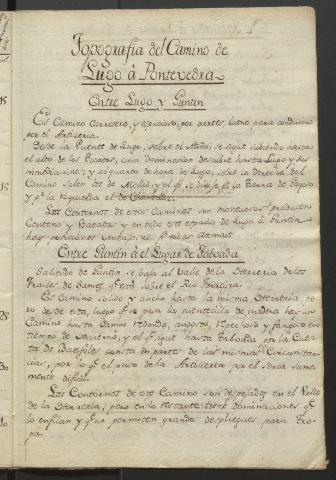 Topografia del Camino de
Lugo à Pontevedra
Entre Lugo y Guntin
Es Camino Carretero, y espacioso, por partes, bueno para conducir
por el Artilleria.
Desde la Puente de Lugo, sobre el Miño, se sigue subiendo hasta
el alto de los cuya Dominacion descubre hasta Lugo y sus
inmediaciones; y a quarto de hora de Lugo, sobre la derecha del
Camino salen los de Mellid, y el qe. se dirige à la
y pr. la izquierda el de Chantada.
Los Contornos de estos Caminos son montuosos producen
Centeno y Batatas y en todo este espacio de Lugo à Guntin
hay posiciones ventajosas pa. todas Armas.
Entre Guntin à el Lugar de Taboada
Saliendo de Guntin se baja al Valle de la Herreria de los
Frailes de qe. està sobre el Rio Ferreyra.
Es Camino solido y ancho hasta la misma Herreria, pe-
ro desde esta, luego qe. se pasa la puentecilla de madera hay un
Camino hasta Campo redondo, angosto, y fangoso en
tiempo de Invierno, y el qe. sigue hasta Taboada por la Cues-
ta de consta en partes de las mismas Circunstan-
cias, por lo qe. el paso de la Artilleria por el seria suma-
mente dificil.
Los Contornos de este Camino son despejados en el Valle
de la Herreria; pero en lo restante tiene dominaciones qe.
lo enfilan y qe. no permiten grandes despliegues para Tro-
pa.